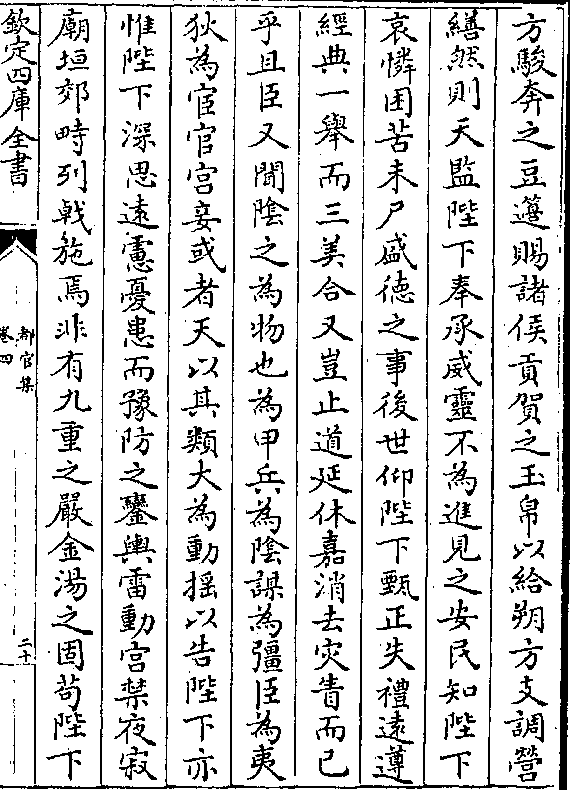 方駿奔之豆籩賜諸侯貢賀之玉帛以給朔方支調營
繕然則天監陛下奉承威靈不為進見之安民知陛下
哀憐困苦未尸盛德之事後世仰陛下甄正失禮遠遵
經典一舉而三美合又豈止道延休嘉消去灾眚而已
乎且臣又聞陰之為物也為甲兵為陰謀為彊臣為夷
狄為宦官宮妾或者天以其類大為動揺以告陛下亦
惟陛下深思遠慮憂患而豫防之鑾輿雷動宮禁夜寂
廟垣郊畤列㦸施焉非有九重之嚴金湯之固苟陛下
欽定四庫全書
都官集
卷四
二十